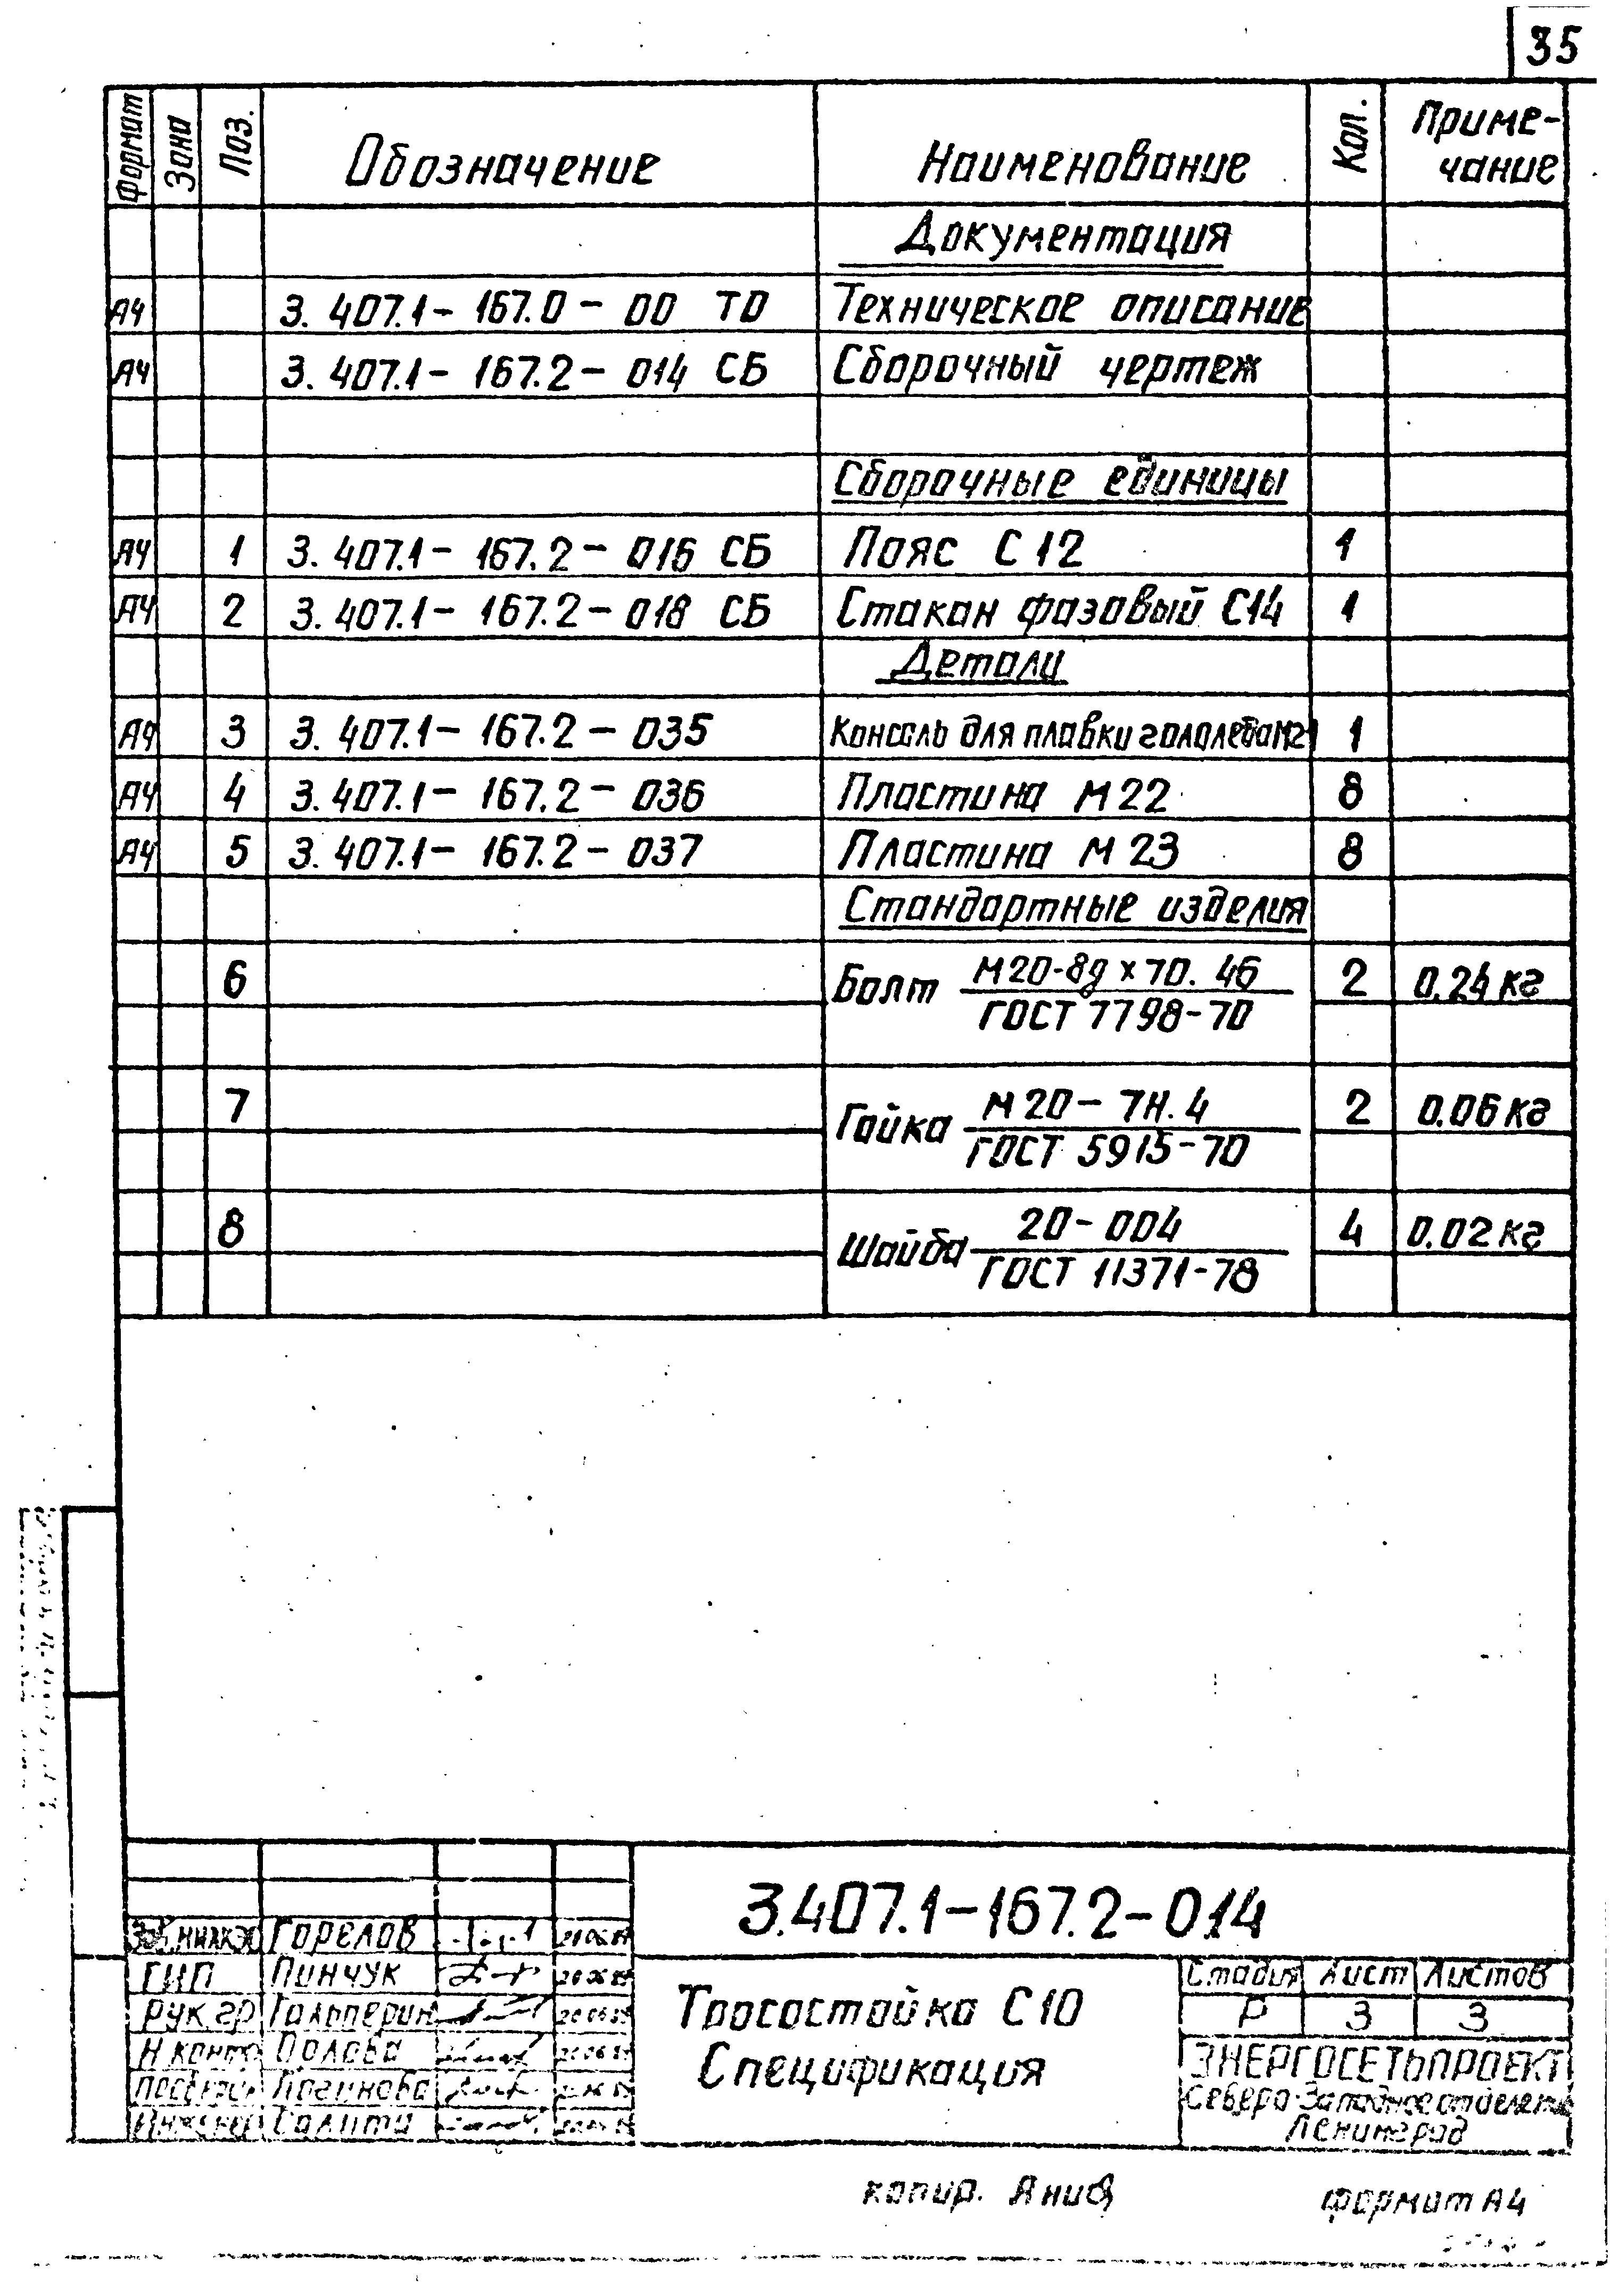 35
Формат Зона Поз. Обозначение Наименование Кол. Приме-
чание
Документация
А4 3.407.1-167.0-00 ТО Техническое описание
А4 3.407.1-167.2-014 СБ Сборочный чертеж
Сборочные единицы
А4 1 3.407.1-167.2-016 СБ Пояс С12 1
А4 2 3.407.1-167.2-018 СБ Стакан фазовый С14 1
Детали
А4 3 3.407.1-167.2-035 Консоль для плавки гололеда 1
А4 4 3.407.1-167.2-036 Пластина М22 8
А4 5 3.407.1-167.2-037 Пластина М23 8
Стандартные изделия
6 Болт М20-8g х 70. 46 2 0.24 кг
ГОСТ 7798-70
7 Гайка М20-7Н.4 2 0.06 кг
ГОСТ 5915-70
8 Шайба 20-004 4 0.02 кг
ГОСТ 11371-78
3.407.1-167.2-014
Горелов
ГИП Пинчук
Рук.гр Гальперин
Н контр Орлова
Логинова
Инженер Салита
Тросостойка С10
Спецификация
Стадия Лист Листов
Р 3 3
ЭНЕРГОСЕТЬПРОЕКТ
Северо-Западное отделение
Ленинград
копир. формат А4